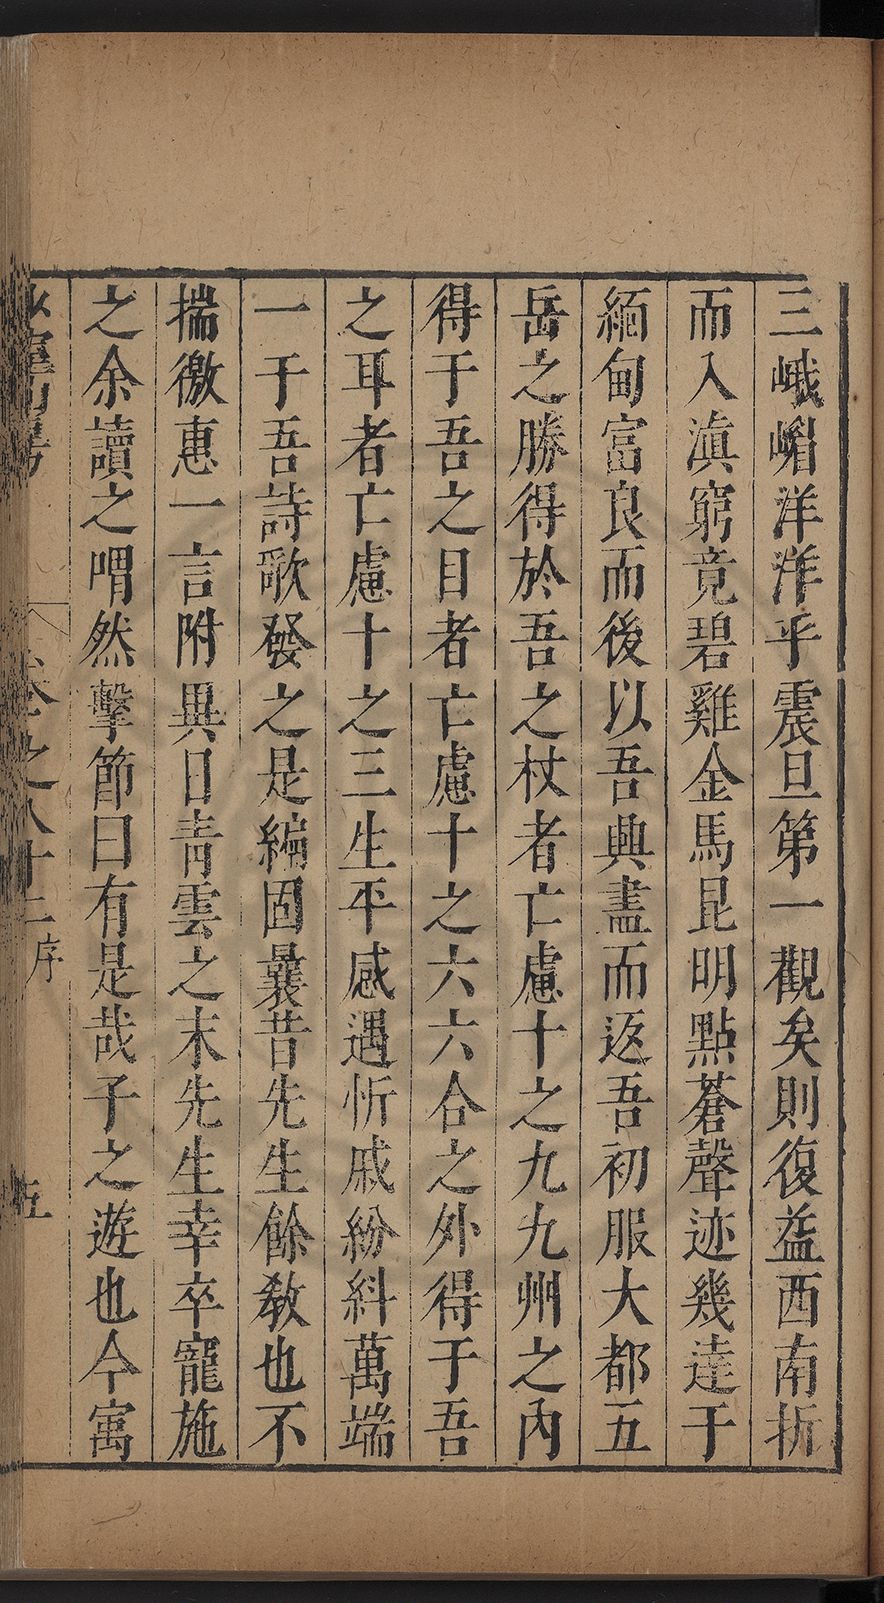 三峨嵋洋洋乎震旦第一觀矣則復益西南折
而入滇窮竟碧雞金馬昆明點蒼聲迹幾達于
緬甸富良而後以吾興盡而返吾初服大都五
岳之勝得於吾之杖者亡慮十之九九州之內
得于吾之目者亡慮十之六六合之外得于吾
之耳者亡慮十之三生平感遇忻戚紛糾萬端
一于吾詩歌發之是編固曩昔先生餘敎也不
揣徼惠一言附異日靑雲之末先生幸卒寵施
之余讀之喟然擊節曰有是哉子之遊也今寓
卷之八十二 序 五